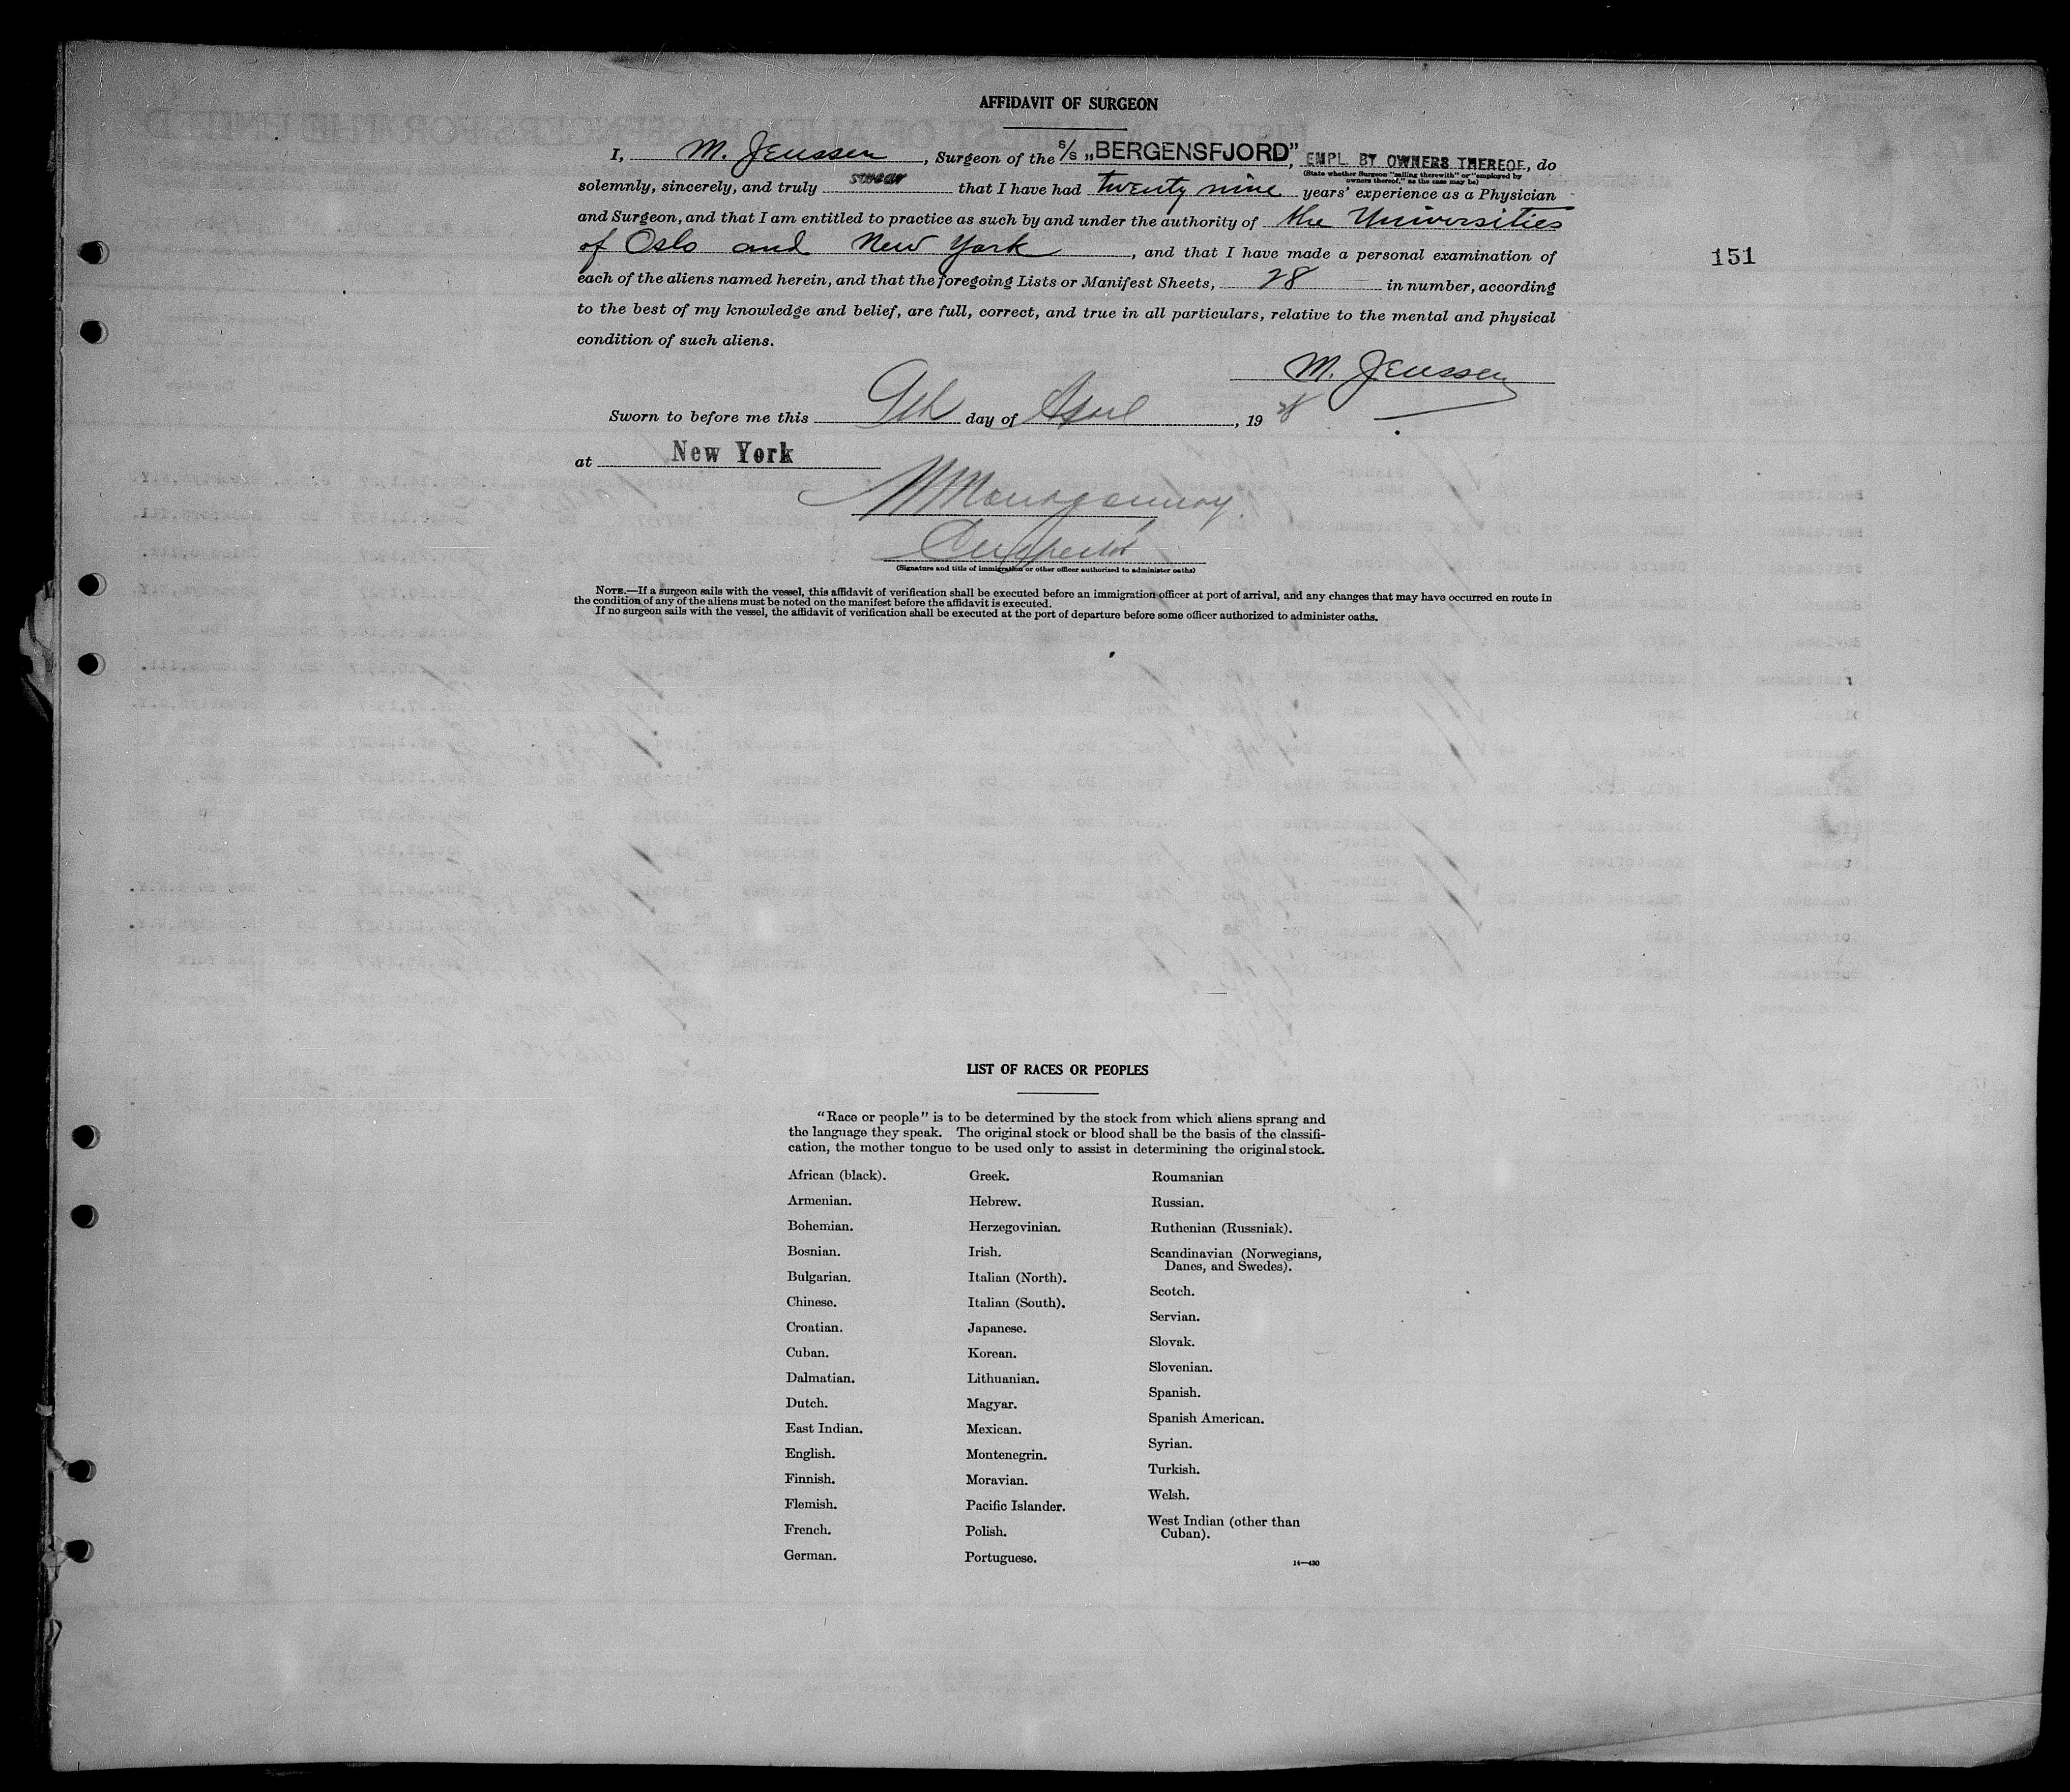 AFFIDAVIT OF SURGEON
I, M. Jenssen, Surgeon of the S/S „BERGENSFJORD", EMPL. BY OWNERS THEREOF, do
(State whether Surgeon "sailing therewith" or "employed by
owners thereof," as the case may be)
solemnly, sincerely, and truly swear that I have had twenty nine years' experience as a Physician
and Surgeon, and that I am entitled to practice as such by and under the authority of the Universities
of Oslo and New York, and that I have made a personal examination of
151
each of the aliens named herein, and that the foregoing Lists or Manifest Sheets, 28 in number, according
to the best of my knowledge and belief, are full, correct, and true in all particulars, relative to the mental and physical
condition of such aliens.
M. Jenssen
Sworn to before me this 9th day of April, 1928
at New York
Montgomery
Inspector
(Signature and title of immigration or other officer authorized to administer oaths)
NOTE.—If a surgeon sails with the vessel, this affidavit of verification shall be executed before an immigration officer at port of arrival, and any changes that may have occurred en route in
the condition of any of the aliens must be noted on the manifest before the affidavit is executed.
If no surgeon sails with the vessel, the affidavit of verification shall be executed at the port of departure before some officer authorized to administer oaths.
LIST OF RACES OR PEOPLES
"Race or people" is to be determined by the stock from which aliens sprang and
the language they speak. The original stock or blood shall be the basis of the classifi-
cation, the mother tongue to be used only to assist in determining the original stock.
African (black).
Armenian.
Bohemian.
Bosnian.
Bulgarian.
Chinese.
Croatian.
Cuban.
Dalmatian.
Dutch.
East Indian.
English.
Finnish.
Flemish.
French.
German.
Greek.
Hebrew.
Herzegovinian.
Irish.
Italian (North).
Italian (South).
Japanese.
Korean.
Lithuanian.
Magyar.
Mexican.
Montenegrin.
Moravian.
Pacific Islander.
Polish.
Portuguese.
Roumanian
Russian.
Ruthenian (Russniak).
Scandinavian (Norwegians,
Danes, and Swedes).
Scotch.
Servian.
Slovak.
Slovenian.
Spanish.
Spanish American.
Syrian.
Turkish.
Welsh.
West Indian (other than
Cuban).
14—430